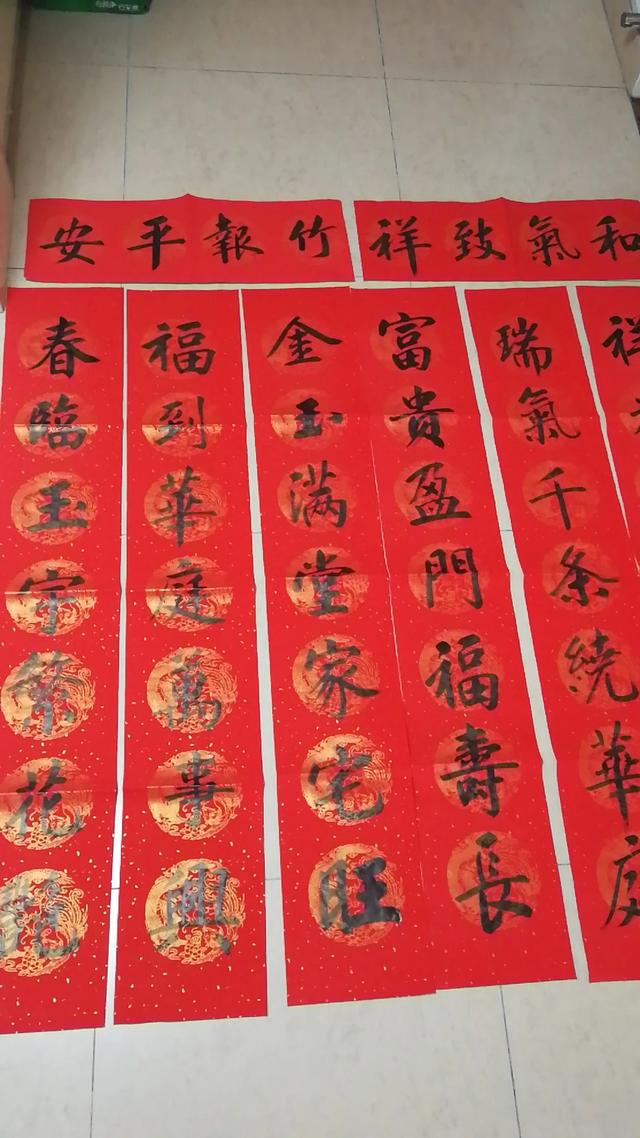 和氣致祥
竹報平安
祥
瑞氣千条繞華庭
富貴盈門福壽長
金玉满堂家宅旺
福到華庭萬事興
春臨玉宇繁花艷